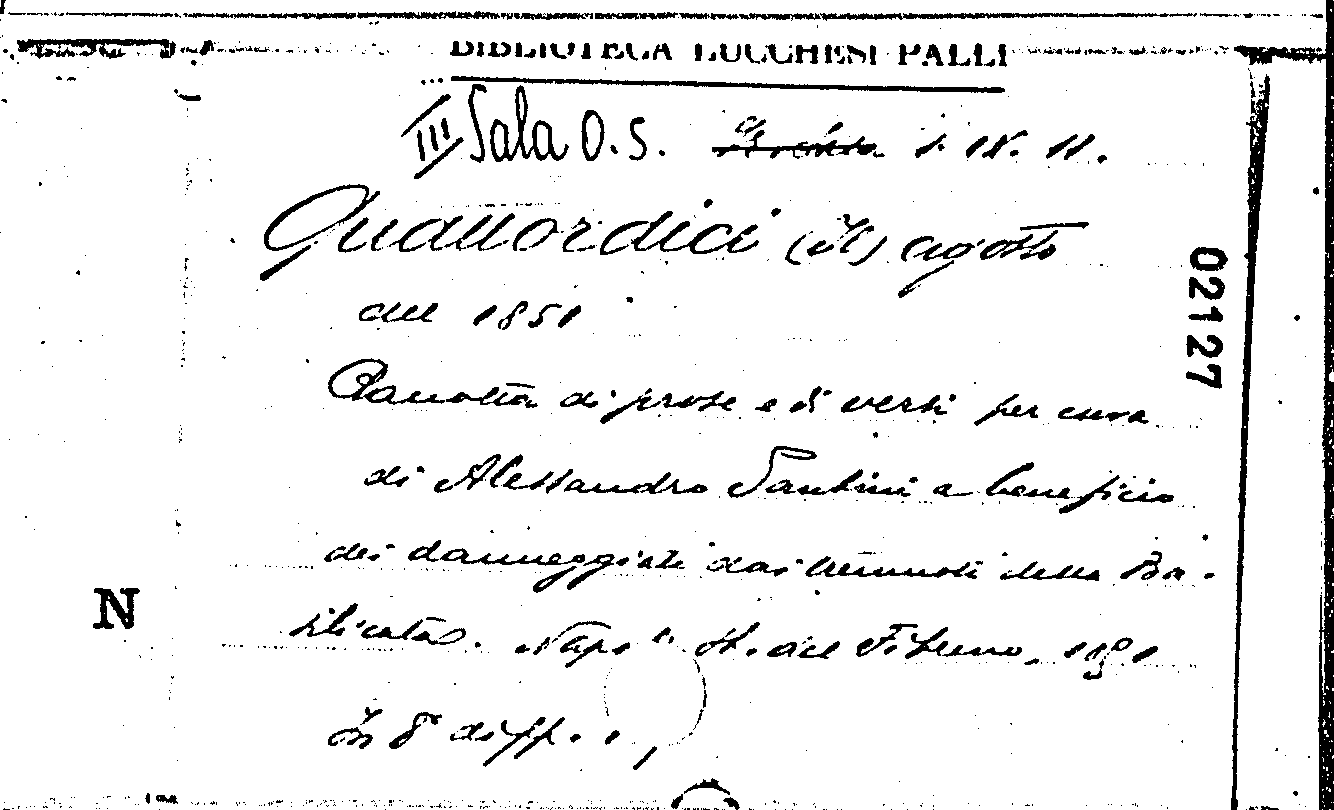 BIBLIOTECA LUCCHESI PALLI
III Sala O.S. 1. IX. 11.
Quattordici (Il) agosto
del 1851
02127
Raccolta di prose e di versi per cura
di Alessandro Santini a beneficio
dei danneggiati dai tremuoti della Ba-
silicata. Napoli St. del Fibreno, 1851
N
In 8° di pp.